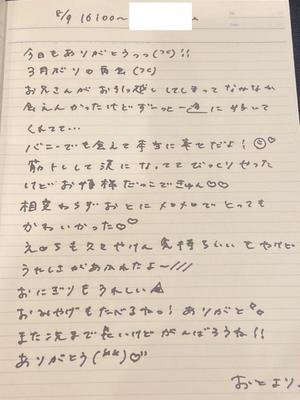 8/9 16:00〜
今日もありがとうっっ(>c)!!
3月だりの再会(>c)
お兄さんがお引越ししてしまってなかなか
会えんかったけどずーっと一途に好きして
くれてて…
バニーでも会えて本当に幸せだよ!
筋トレして涙になっててびっくりやった
けどお姫様だっこできゅん♡♡
相変わらずおとにメロメロでとっても
かわいかった♡
も久々やけん気持ちいいてやけど
うれしさがあふれたよー///
おにぎりもうれしい
おみやげもたべるね! ありがと
また次まで長いけどがんばろうね!!
ありがとう(^^)♡
おとより